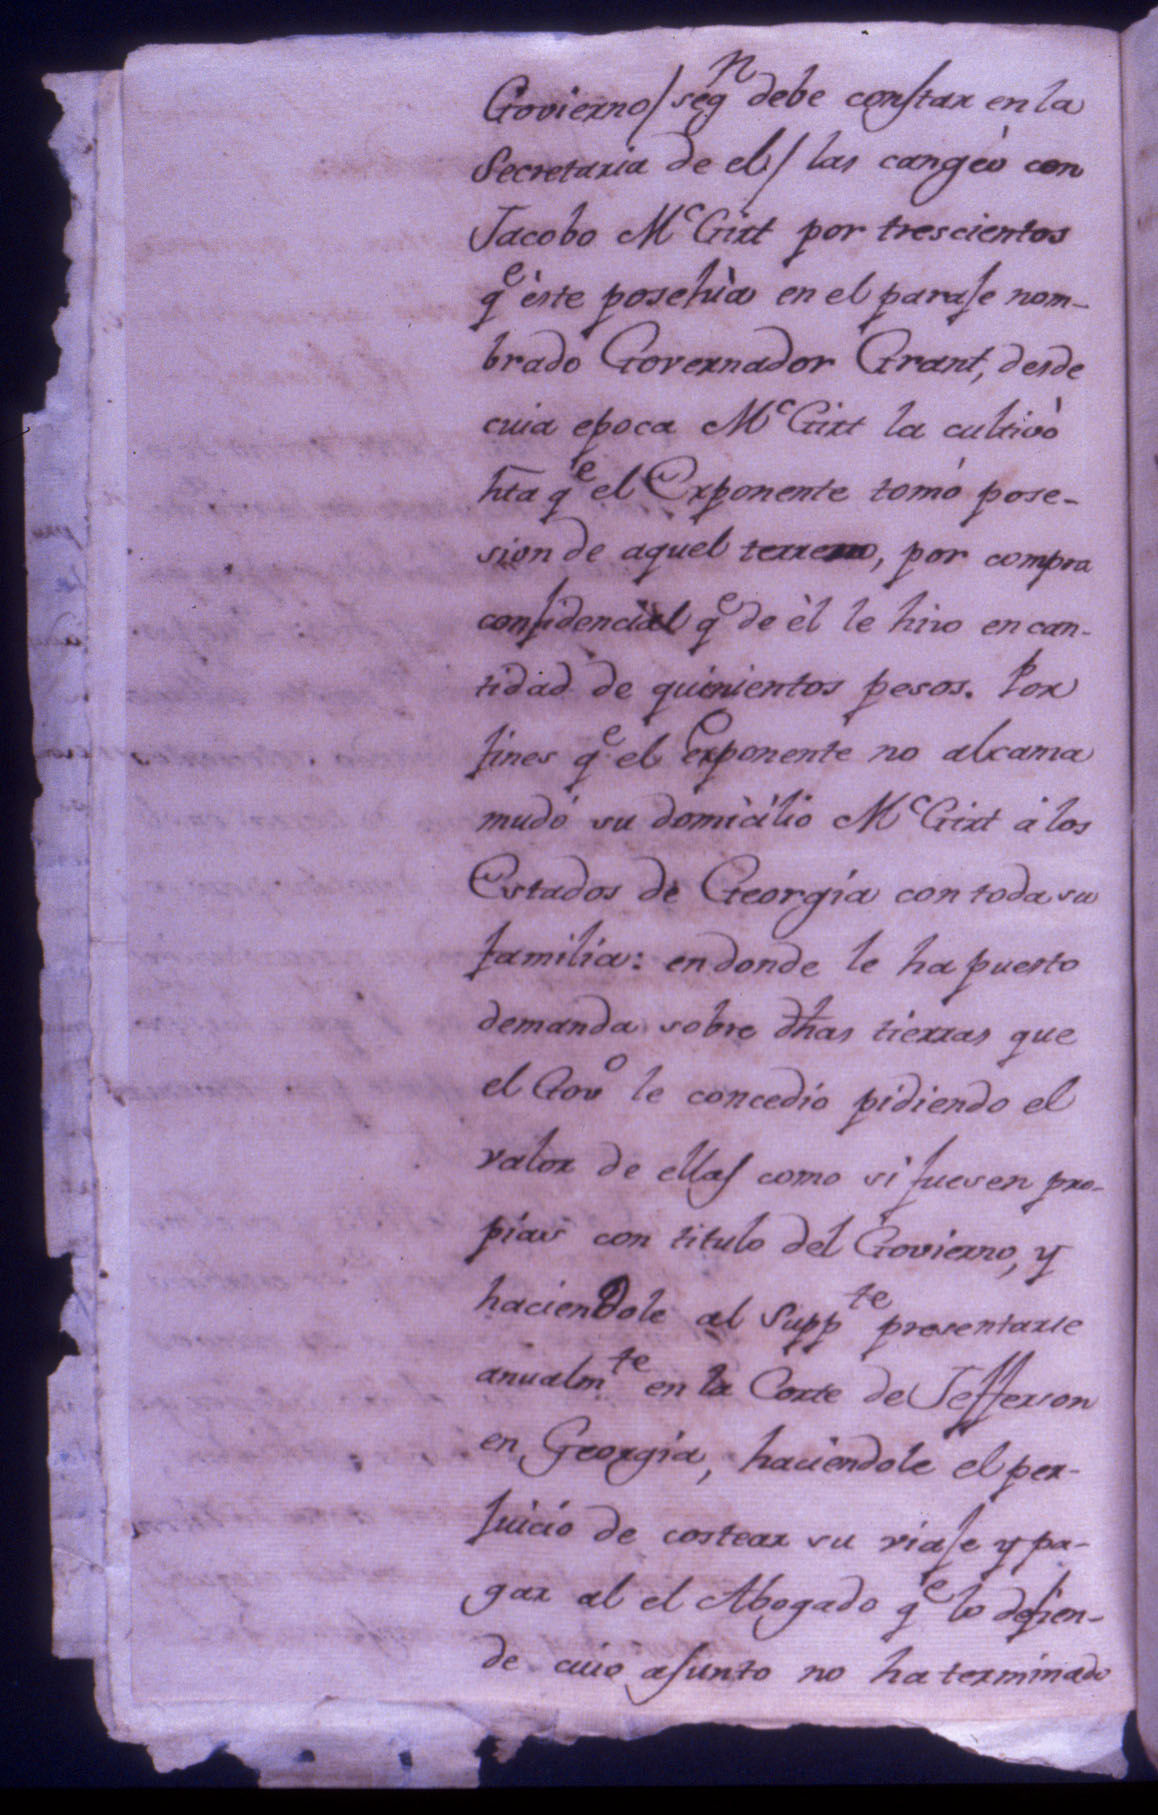 Govierno/ segn debe constar en la
Secretaria de el/ las cangeò con
Jacobo McGirt por trescientos
qe èste posehìa en el paraje nom-
brado Governador Grant, desde
cuia epoca McGirt la cultivò
hta qe el Exponente tomó pose-
sion de aquel terreno, por compra
confidencial qe de èl le hizo en can-
tidad de quinientos pesos. Por
fines qe el exponente no alcanza
mudó su domicilio McGirt à los
Estados de Georgia con toda su
familia: en donde le ha puesto
demanda sobre dhas tierras que
el Govo le concedio pidiendo el
valor de ellas como si fuesen pro-
pias con titulo del Govierno, y
haciendole al Suppte presentarse
anualmte en la Corte de Jefferson
en Georgia, haciendole el per-
juicio de costear su viaje y pa-
gar al el Abogado qe lo defien-
de cuio asunto no ha terminado